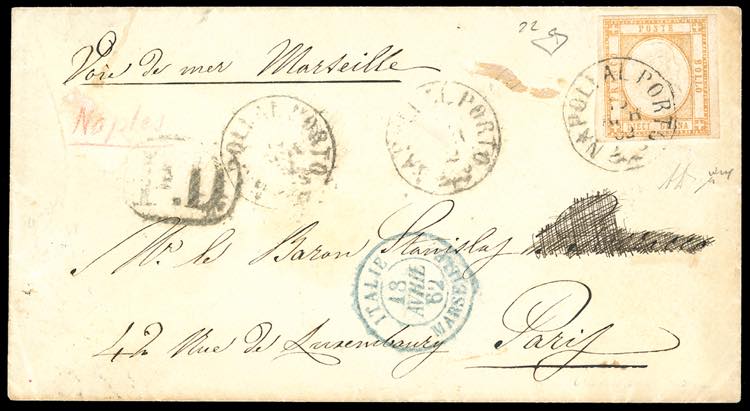 22
POSTE
BOLLO
DIECI GRANA
NAPOLI AL PORTO
Voie de mer Marseille
Naples
NAPOLI AL PORTO
NAPOLI AL PORTO
P.D
Mr. le Baron Stanislas
ITALIE 18 AVRIL 62 MARSEILLE
42 Rue de Luxembourg Paris